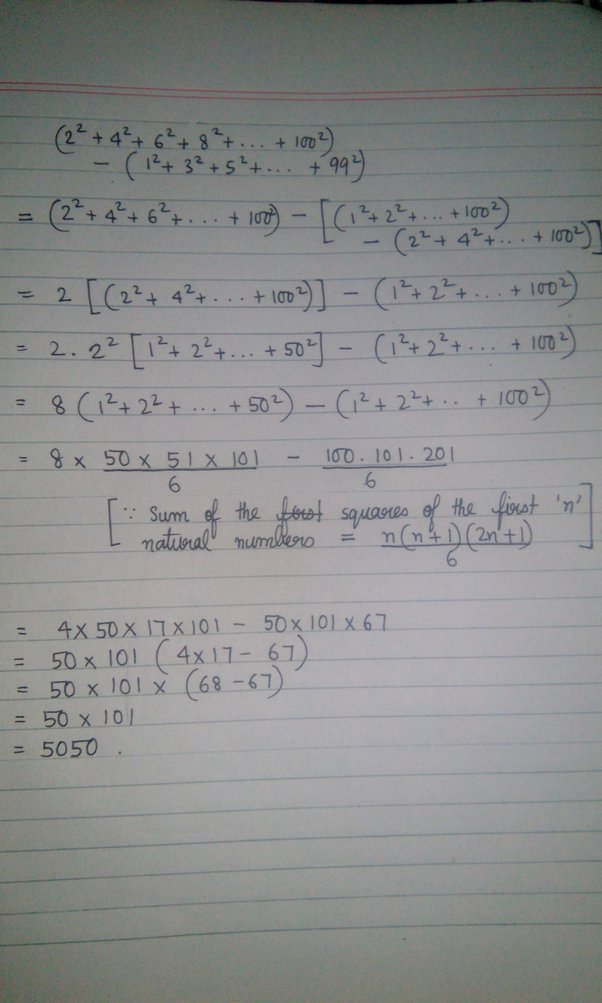 (2² + 4² + 6² + 8² + ... + 100²)
− (1² + 3² + 5² + ... + 99²)
= (2² + 4² + 6² + ... + 100²) − [(1² + 2² + ... + 100²)
− (2² + 4² + ... + 100²)]
= 2 [(2² + 4² + ... + 100²)] − (1² + 2² + ... + 100²)
= 2 . 2² [1² + 2² + ... + 50²] − (1² + 2² + ... + 100²)
= 8 (1² + 2² + ... + 50²) − (1² + 2² + .. + 100²)
= 8 × 50 × 51 × 101 / 6 − 100 . 101 . 201 / 6
[∵ Sum of the first squares of the first 'n'
natural numbers = n(n+1)(2n+1) / 6]
= 4 × 50 × 17 × 101 − 50 × 101 × 67
= 50 × 101 (4 × 17 − 67)
= 50 × 101 × (68 − 67)
= 50 × 101
= 5050 .